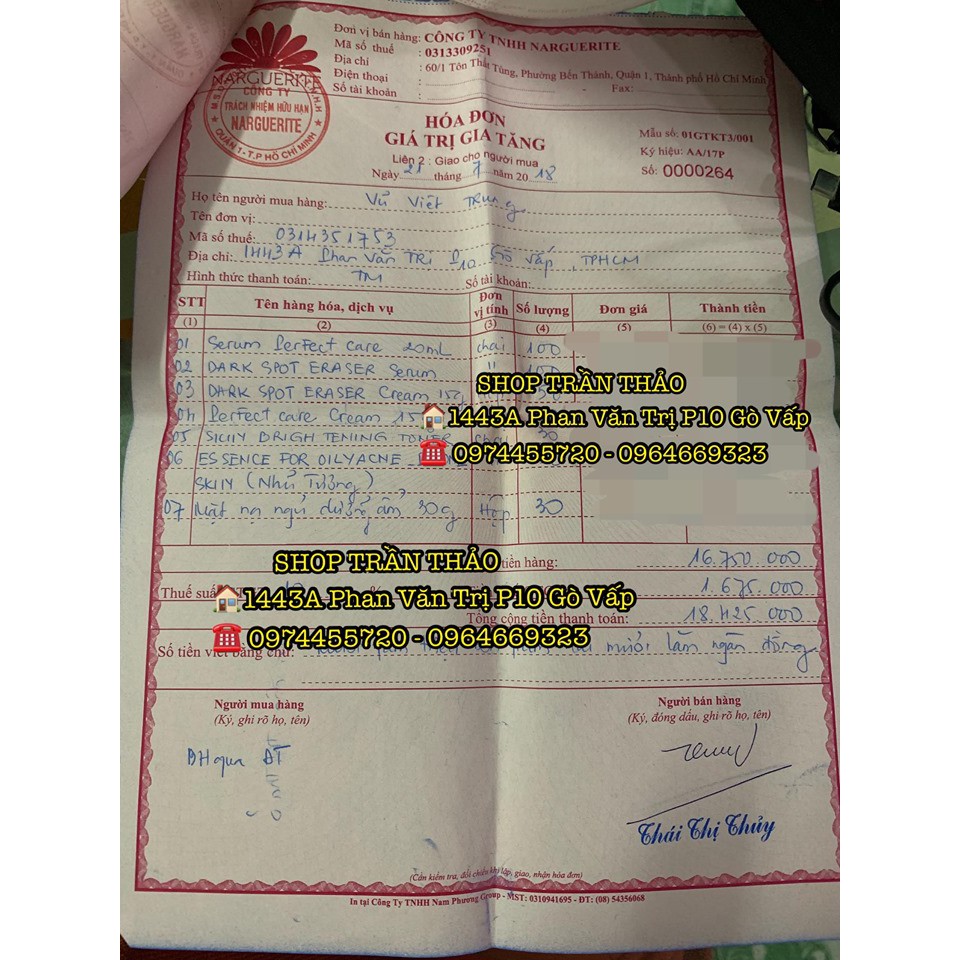 NARGUERITE
CÔNG TY
TRÁCH NHIỆM HỮU HẠN
NARGUERITE
QUẬN 1 - T.P HỒ CHÍ MINH
Đơn vị bán hàng: CÔNG TY TNHH NARGUERITE
Mã số thuế : 0313309251
Địa chỉ : 60/1 Tôn Thất Tùng, Phường Bến Thành, Quận 1, Thành phố Hồ Chí Minh
Điện thoại : - Fax:
Số tài khoản :
HÓA ĐƠN
GIÁ TRỊ GIA TĂNG
Liên 2 : Giao cho người mua
Ngày 21 tháng 7 năm 20 18
Mẫu số: 01GTKT3/001
Ký hiệu: AA/17P
Số: 0000264
Họ tên người mua hàng: Vũ Việt Trung
Tên đơn vị:
Mã số thuế: 0314351753
Địa chỉ: 1443A Phan Văn Trị P10 Gò Vấp, TPHCM
Hình thức thanh toán: TM Số tài khoản:
STT Tên hàng hóa, dịch vụ Đơn vị tính Số lượng Đơn giá Thành tiền
(1) (2) (3) (4) (5) (6) = (4) x (5)
01 Serum Perfect care 20mL chai 100
02 DARK SPOT ERASER Serum " 100
03 DARK SPOT ERASER Cream 15g 30
SHOP TRẦN THẢO
04 Perfect care Cream 15
1443A Phan Văn Trị P10 Gò Vấp
05 SKIIY BRIGHTENING TONER chai 30
0974455720 - 0964669323
06 ESSENCE FOR OILYACNE
SKIIY (Nhũ Tương)
07 Mặt nạ ngủ dưỡng ẩm 30g Hộp 30
SHOP TRẦN THẢO
tiền hàng: 16.750.000
Thuế suất 1.675.000
1443A Phan Văn Trị P10 Gò Vấp
Tổng cộng tiền thanh toán: 18.425.000
0974455720 - 0964669323
Số tiền viết bằng chữ: mươi lăm ngàn đồng
Người mua hàng
(Ký, ghi rõ họ, tên)
Người bán hàng
(Ký, đóng dấu, ghi rõ họ, tên)
BH qua ĐT
Thái Thị Thủy
(Cần kiểm tra, đối chiếu khi lập, giao, nhận hóa đơn)
In tại Công Ty TNHH Nam Phương Group - MST: 0310941695 - ĐT: (08) 54356068